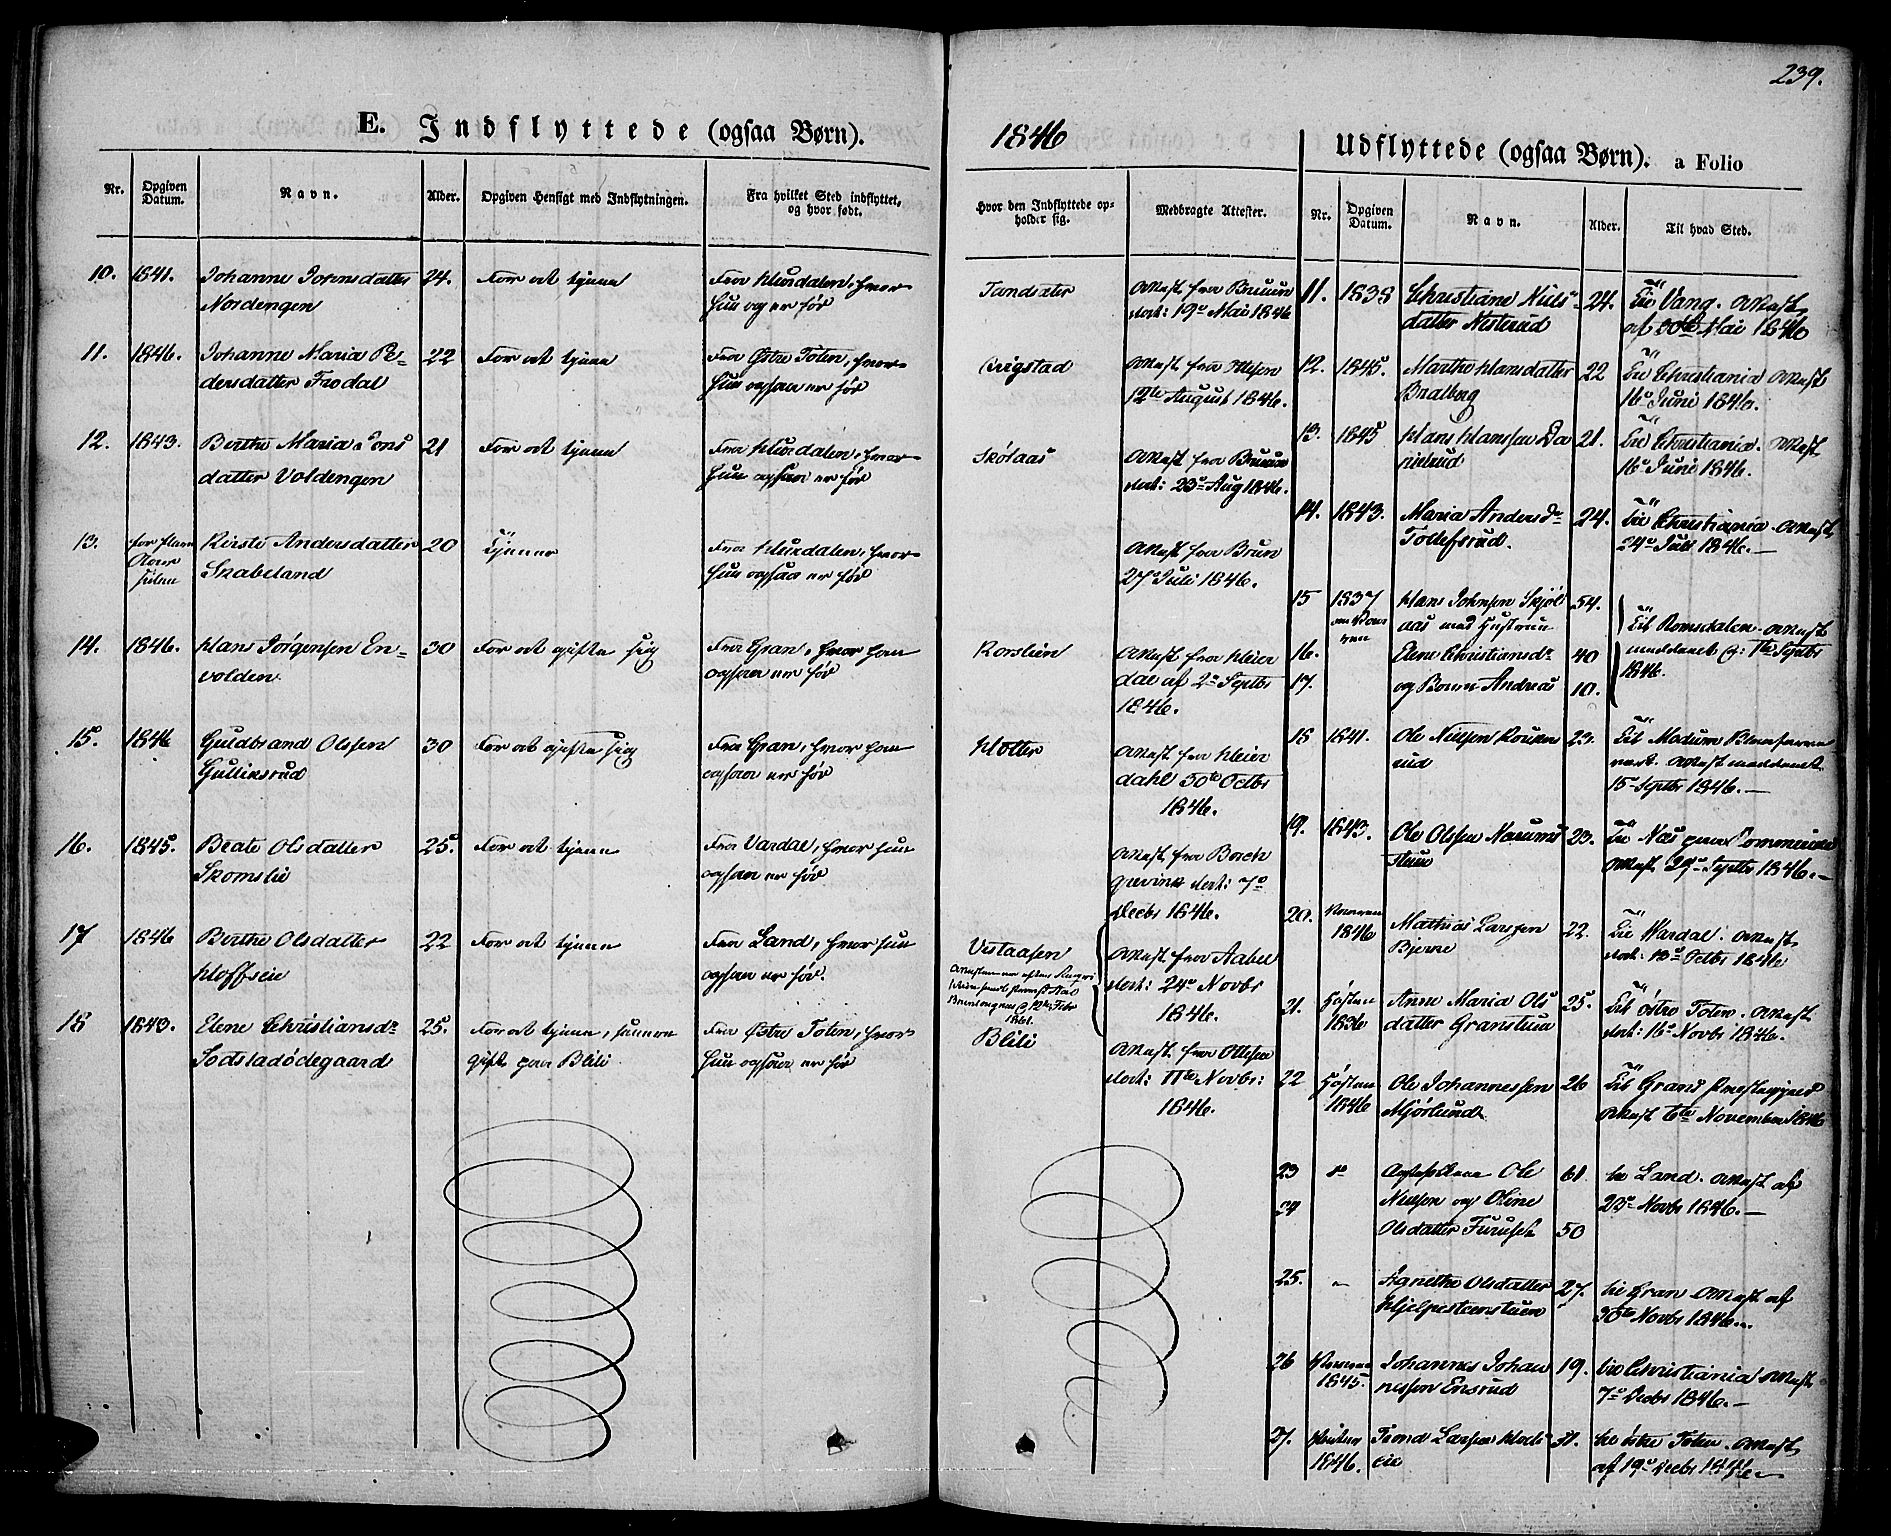 239.
E. Indflyttede (ogsaa Børn).
1846
Udflyttede (ogsaa Børn). a Folio
Nr. Opgiven Datum. Navn. Alder. Opgiven Hensigt med Indflytningen. Fra hvilket Sted indflyttet, og hvor født.
Hvor den Indflyttede opholder sig. Medbragte Attester.
Nr. Opgiven Datum. Navn. Alder. Til hvad Sted.
10. 1841. Johanne Joensdatter 24. For at tjene Fra Hurdalen, hvor
Nordengen hun og er før
Tandsæter Attest fra Bruun
dat: 19de Mai 1846
11. 1846. Johanne Maria Pe- 22 For at tjene Fra Østre Toten, hvor-
dersdatter Frodal hun ogsaa er før
Attest fra
12te August 1846.
12. 1843. Berthe Maria Jens 21 For at tjene Fra Hurdalen, hvor
datter Voldengen hun ogsaa er før
Skølaas Attest fra Bruun
dat: 23de Aug 1846.
13. Kirsti Andersdatter 20 Tjener Fra Hurdalen, hvor
Skabeland hun ogsaa er før
Attest fra Brun
27de Juli 1846.
14. 1846. Hans Jørgensen En- 30 For at gifte sig Fra Gran, hvor han
volden ogsaa er før
Korslien Attest fra Heier
dal af 2de Septbr
1846.
15. 1846 Guldbrand Olssen 30 For at gifte sig Fra Gran, hvor han
Gulliksrud ogsaa er før
Attest fra Heier
dahl 30te Octbr
1846.
16. 1845. Beate Olsdatter 25. For at tjene Fra Vardal, hvor hun
Skomslie ogsaa er før
Attest fra Borch
grevink dat: 7de
Decbr 1846.
17 1846 Berthe Olsdatter 22 For at tjene Fra Land, hvor hun
Hoffseie ogsaa er før.
Vestaasen Attest fra Aabel
dat: 24de Novbr
1846.
18 1843. Elene Christiansdr 25. For at tjene, hun er Fra Østre Toten, hvor
Sodstadødegaard gift paa Blili hun ogsaa er før
Blili Attest fra Ottesen
dat: 11te Novbr:
1846.
11. 1838 Christiane Niels- 24. Til Vang. Attest
datter Nisterud af Mai 1846
12. 1845. Marthe Hansdatter 22 Til Christiania Attest
Bratberg 16de Juni 1846.
13. 1845 Hans Hanssen Da 21. Til Christiania. Attest
nielsrud 16de Juni 1846.
14. 1843. Maria Andersdr 24. Til Christiania. Attest
Tollefsrud. 24de Juli 1846.
15 1837 Hans Johnsen Skjøl 54. Til Romsdalen. Attest
aas med Hustrue meddeelt d: Septbr
16. Elene Christiansdr 40 1846.
17. og Barn Andreas 10.
18 1841. Ole Nielsen 23. Til Modum Blaafarve
rud værk. Attest meddeelt
15de Septbr 1846.
19. 1843. Ole Olsen 23. Til Næs paa Rommerike
Attest 29de Septbr 1846.
20. 1846 Mathias Larssen 22. Til Wardal. Attest
Bjerne dat: 10de Octbr 1846
21. Høsten Anne Maria Ols 25. Til østre Toten. Attest
1836 datter Granstuen dat: 16de Novbr 1846.
22 Høsten Ole Johannessen 26 Til Grans Præstegjeld
1846 Mjørlund Attest 6te November 1846
23 do Ægtefolkene Ole 61. til Land. Attest af
24 Nielsen og Oline 23de Novbr 1846.
Olsdatter Furuset 50
25. Agnethe Olsdatter 27. til Gran Attest af
Hjelpesteenstuen 30te Novbr 1846.
26 1845. Johannes Johan 19. til Christiania Attest
nessen Ensrud 7de Decbr 1846.
27. 1846. Trond Larsen til østre Toten. Attest
eie af 19de Decbr 1846